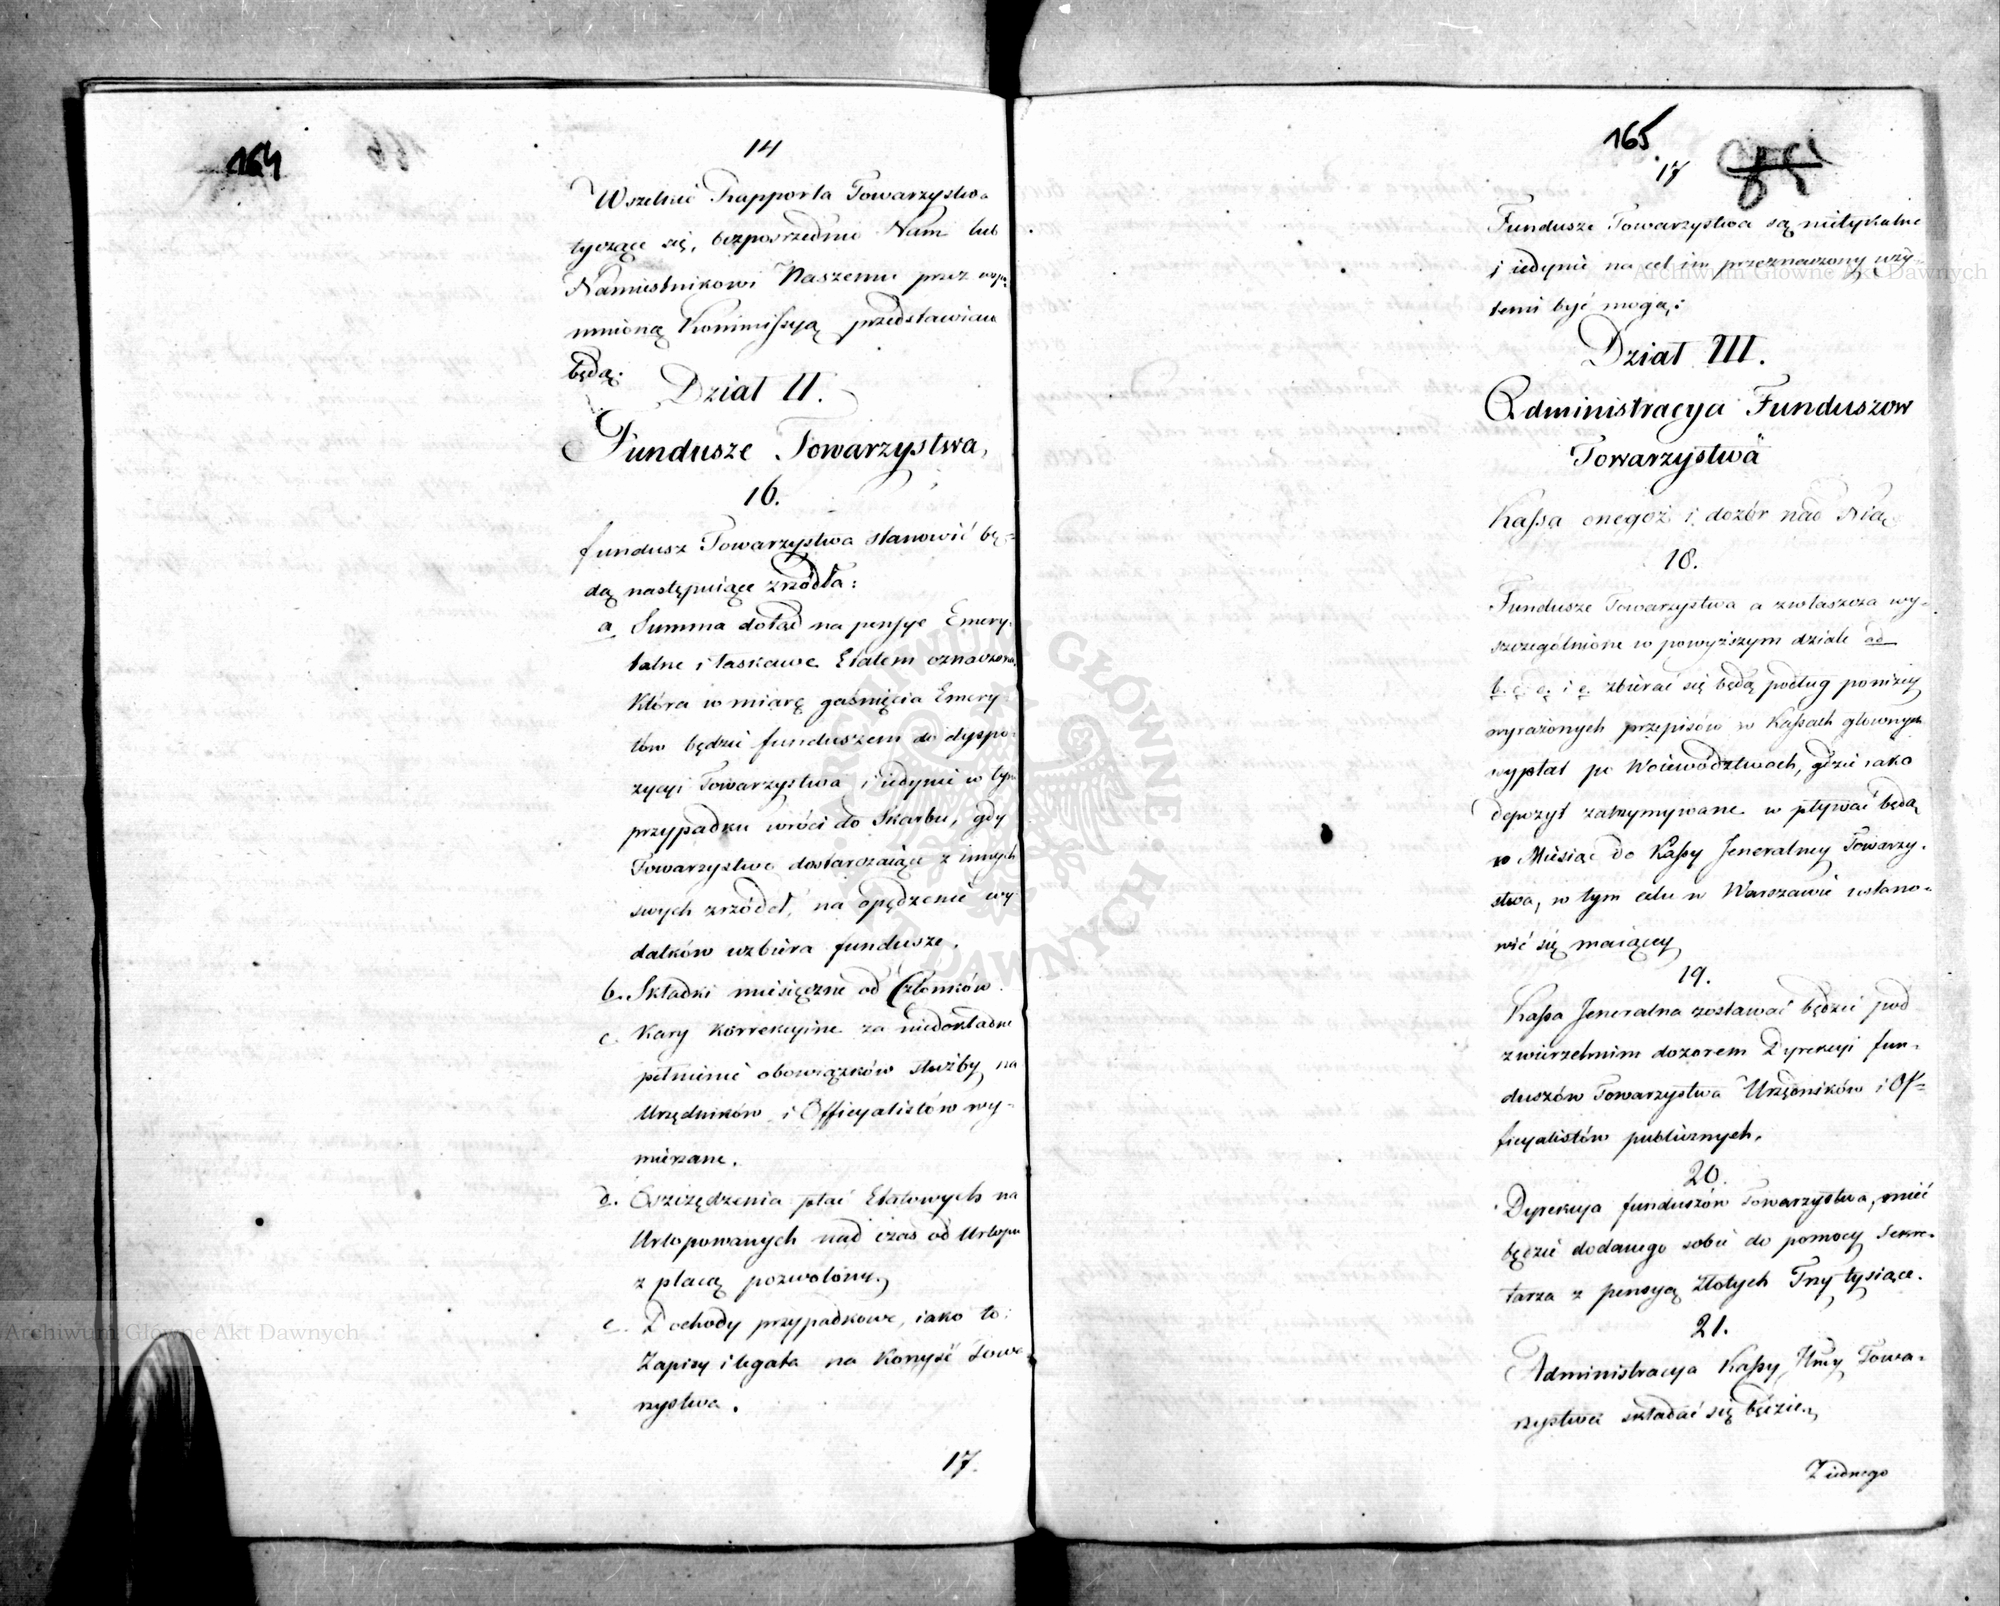 164
14
Wszelkie Rapporta Towarzystwa
tyczące się, bezpośrednio Nam lub
Namiestnikowi Naszemu przez wspo-
mnioną Kommissyą przedstawiane
będą.
Dział II.
Fundusze Towarzystwa,
16.
fundusz Towarzystwa stanowić bę=
dą następuiące zrzódła:
a Summa dotąd na pensye Emery-
talne i łaskawe Etatem oznaczona
Która w miarę gaśnięcia Emery-
tów będzie funduszem do dyspo-
zycyi Towarzystwa i iedynie w tym
przypadku wróci do Skarbu, gdy
Towarzystwo dostarczaiące z innych
swych zrzódeł, na opędzenie wy-
datków uzbiera fundusze.
b. Składki miesięczne od Członków.
c. Kary korrekcyine za niedokładne
pełnienie obowiązków służby na
Urzędników i Officyalistów wy-
mierzane.
d. Oszczędzenia płac Etatowych na
Urlopowanych nad czas od Urlopu
z płacą pozwolony.
e. Dochody przypadkowe, iako to:
Zapisy i legata na korzyść Towa
rzystwa.
17.
165
17
Fundusze Towarzystwa są nietykalne
i iedynie na cel im przeznaczony uży-
temi być mogą:
Dział III.
Administracya Funduszow
Towarzystwa
Kassa onegoż i dozór nad Nią
18.
Fundusze Towarzystwa a zwłaszcza wy-
szczególnione w powyższym dziale ad
b. c. d. i e. zbierać się będą podług poniżey
wyrażonych przepisów w Kassach głownych
wypłat po Woiewództwach, gdzie iako
depozyt zatrzymywane wpływać będą
co Miesiąc do Kassy Jeneralney Towarzy-
stwa, w tym celu w Warszawie ustano-
wić się maiącey
19.
Kassa Jeneralna zostawać będzie pod
zwierzchnim dozorem Dyrekcyi fun-
duszów Towarzystwa Urzędników i Of=
ficyalistów publicznych.
20.
Dyrekcya funduszów Towarzystwa, mieć
będzie dodanego sobie do pomocy Sekre-
tarza z pensyą Złotych Trzy tysiące.
21.
Administracya Kassy Jlney Towa-
rzystwa składać się będzie
Z iednego
Archiwum Główne Akt Dawnych
Archiwum Główne Akt Dawnych
ARCHIWUM GŁÓWNE AKT DAWNYCH